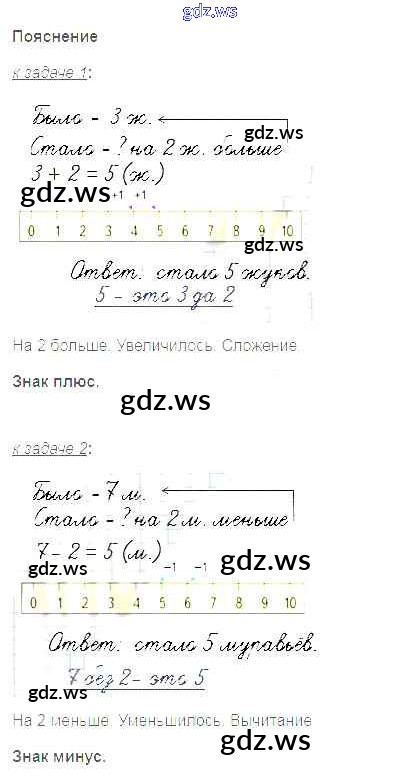 gdz.ws
Пояснение
к задаче 1:
Было - 3 ж.
gdz.ws
Стало - ? на 2 ж. больше
3 + 2 = 5 (ж.)
gdz.ws
+1 +1
0 1 2 3 4 5 6 7 8 9 10
gdz.ws
Ответ: стало 5 жуков.
5 - это 3 да 2
На 2 больше. Увеличилось. Сложение.
Знак плюс.
gdz.ws
к задаче 2:
Было - 7 м.
Стало - ? на 2 м. меньше
7 - 2 = 5 (м.)
gdz.ws
gdz.ws
-1 -1
0 1 2 3 4 5 6 7 8 9 10
Ответ: стало 5 муравьёв.
7 без 2 - это 5
gdz.ws
На 2 меньше. Уменьшилось. Вычитание
gdz.ws
Знак минус.